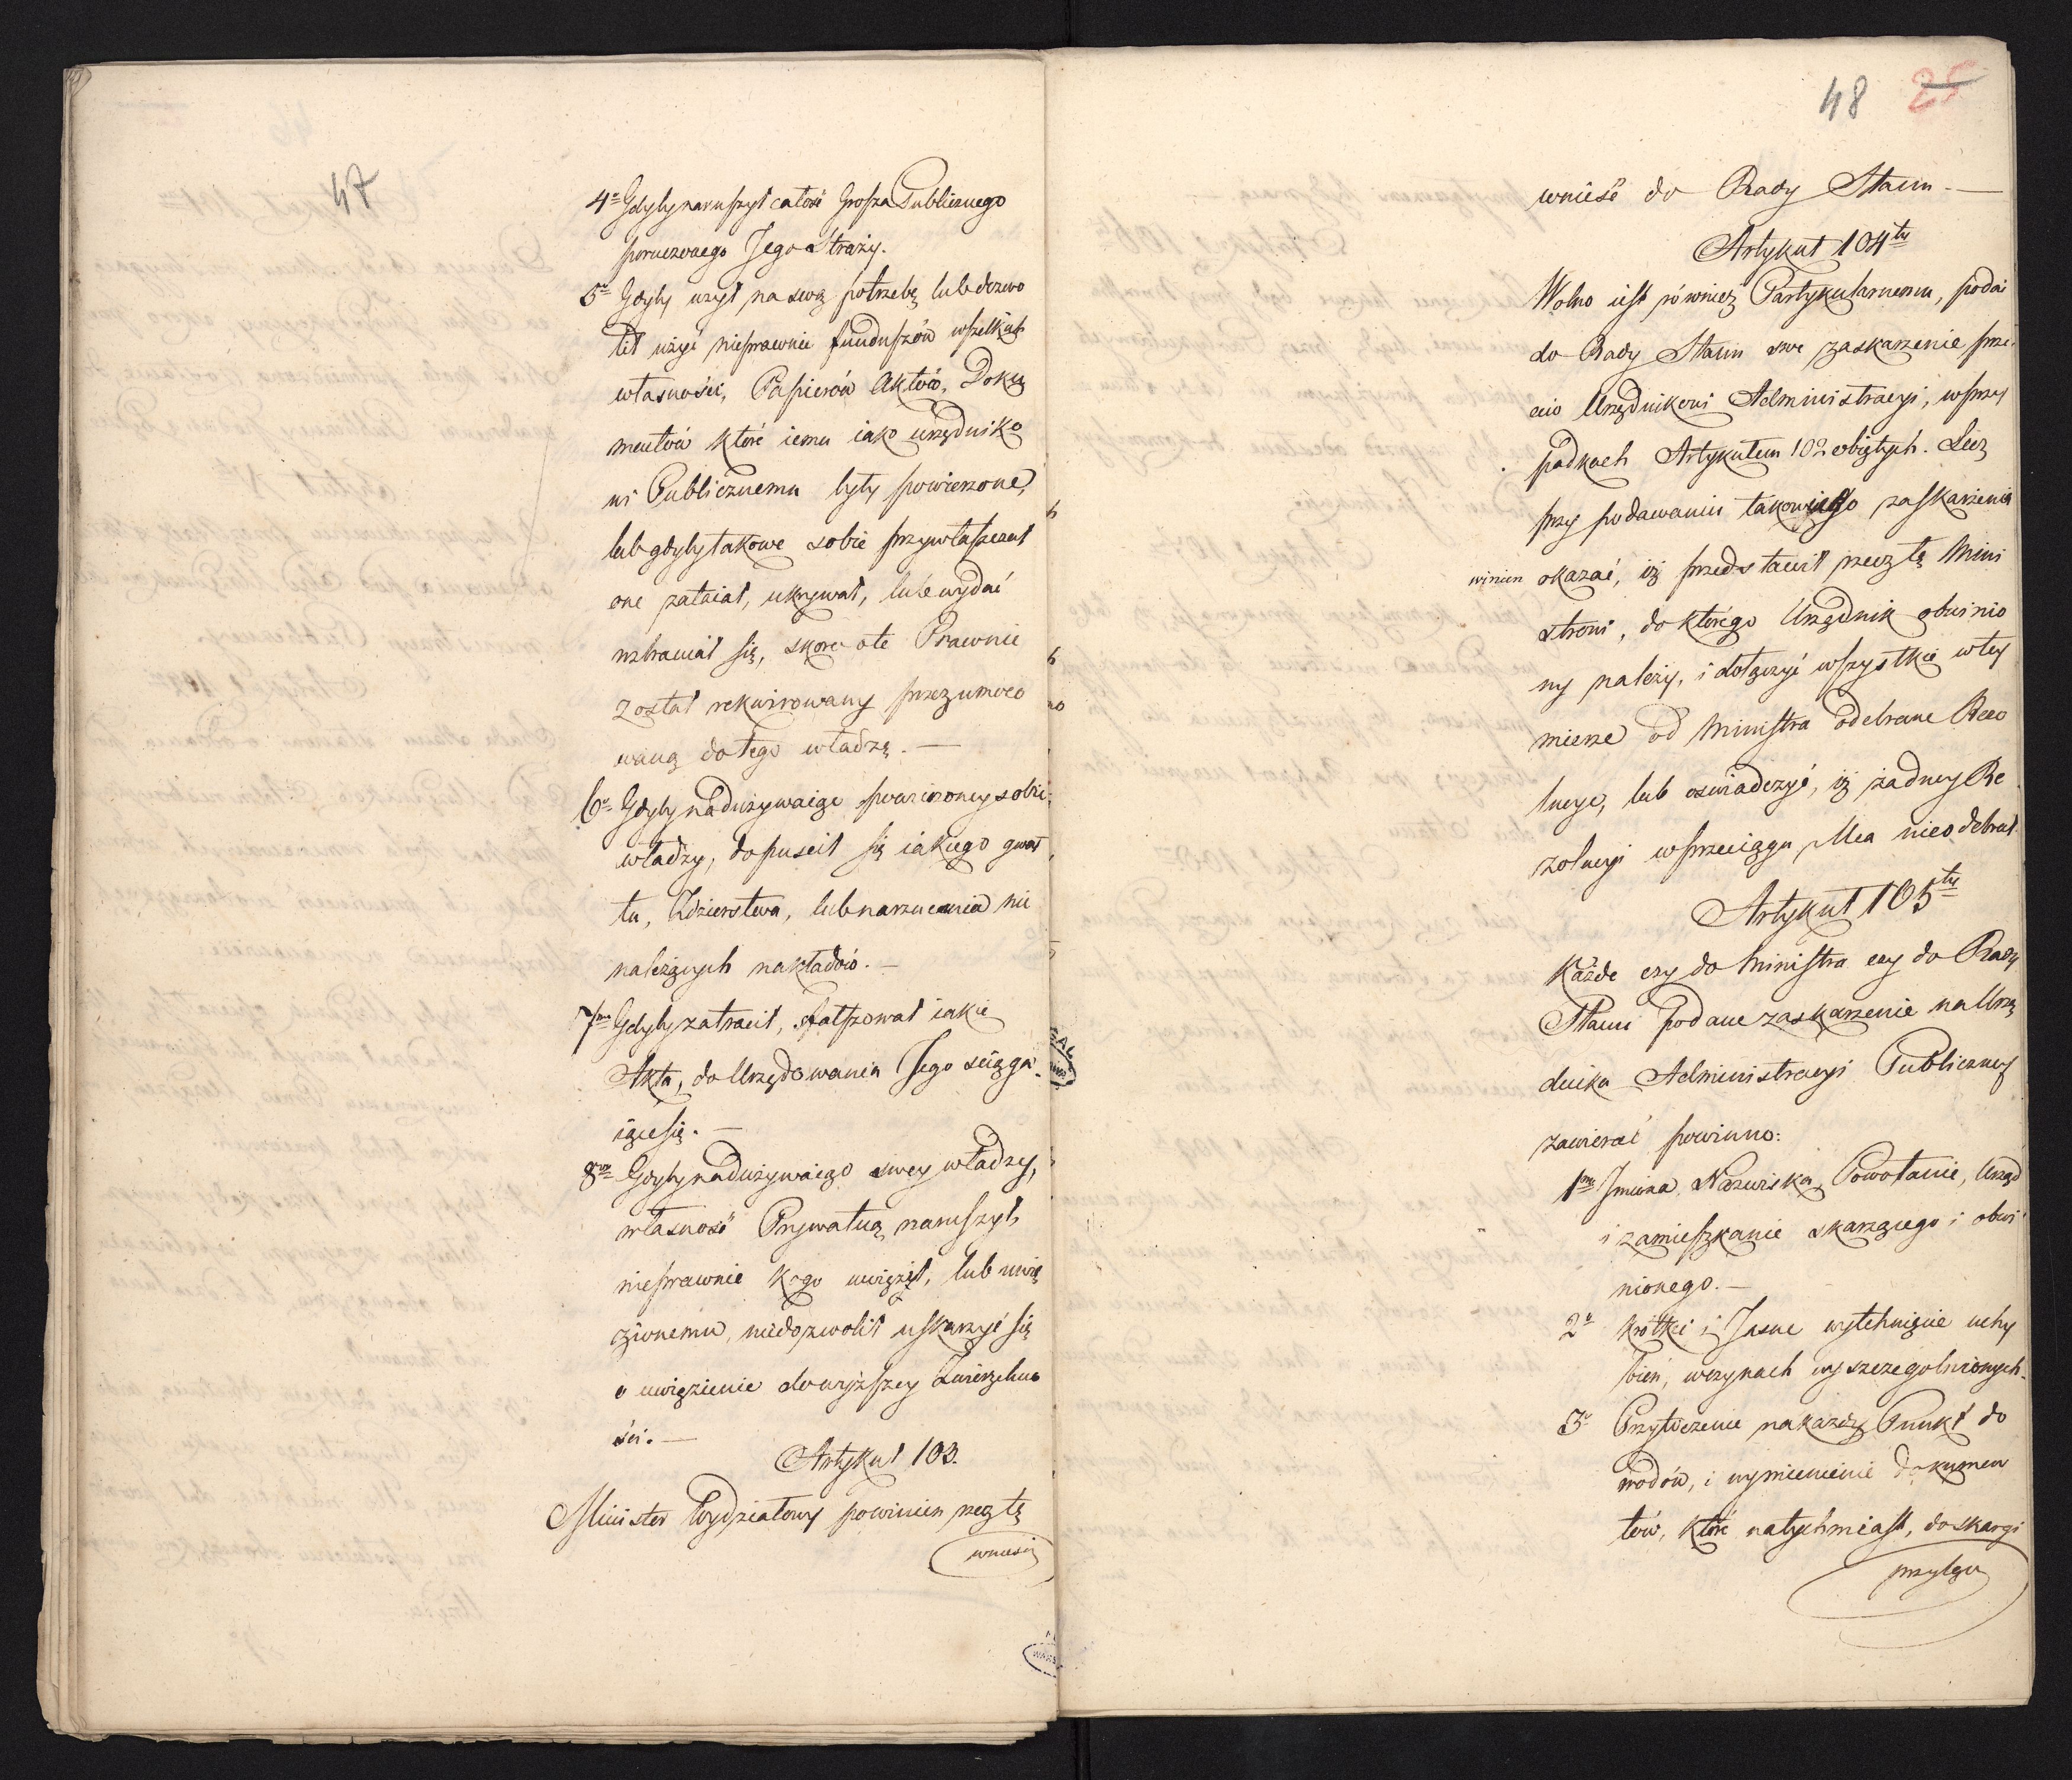 47
4o Gdyby naruszył całość Grosza Publicznego
poruczonego Jego Straży.
5o Gdyby użył na swą potrzebę lub dozwo
lił użyć nieprawnie funduszów wszelkich
własności, Papierów Aktów, Doku
mentów które iemu iako urzędniko
wi Publicznemu były powierzone,
lub gdyby takowe sobie przywłaszczał
one zataiał, ukrywał, lub wydać
wzbraniał się, skoro o te Prawnie
został rekwirowany przez umoco
waną do tego władzę. —
6o Gdyby nadużywaiąc powierzoney sobie
władzy, dopuścił się iakiego gwał
tu, Zdzierstwa, lub narzucenia nie
należących nakładów. —
7mo Gdyby zatracił, sfałszował iakie
Akta, do Urzędowania Jego ściąga
iące się. —
8vo Gdyby nadużywaiąc swey władzy,
własność Prywatną naruszył,
nieprawnie kogo uwięził, lub uwię
zionemu, niedozwolił uskarżyć się
o uwięzienie do wyższey Zwierzchno
ści. —
Artykuł 103.
Minister Wydziałowy powinien rzecz tę
wnieść
48 25
wnieść do Rady Stanu. —
Artykuł 104ty
Wolno iest również Partykularnemu, podać
do Rady Stanu swe zaskarżenie prze
ciw Urzędnikowi Administracyi, w przy
padkach Artykułem 102 obiętych. Lecz
przy podawaniu takowego zaskarżenia
winien okazać, iż przedstawił rzecz tę Mini
strowi, do którego Urzędnik obwinio
ny należy, i dołączyć wszystkie w tey
mierze od Ministra odebrane Rezo
lucye, lub oświadczyć, iż żadney Re
zolucyi w przeciągu Mca nieodebrał.
Artykuł 105ty
Każde czy do Ministra czy do Rady
Stanu podane zaskarżenie na Urzę
dnika Administracyi Publiczney
zawierać powinno:
1mo Imiona, Nazwiska, Powołanie, Urząd
i zamieszkanie skarżącego i obwi
nionego. —
2o Krótkie i Jasne wytchnięcie uchy
bień, w czynach wyszczególnionych.
3o Przytoczenie na każdy Punkt do
wodów, i wymienienie dokumen
tów, które natychmiast, do skargi
przyłącz